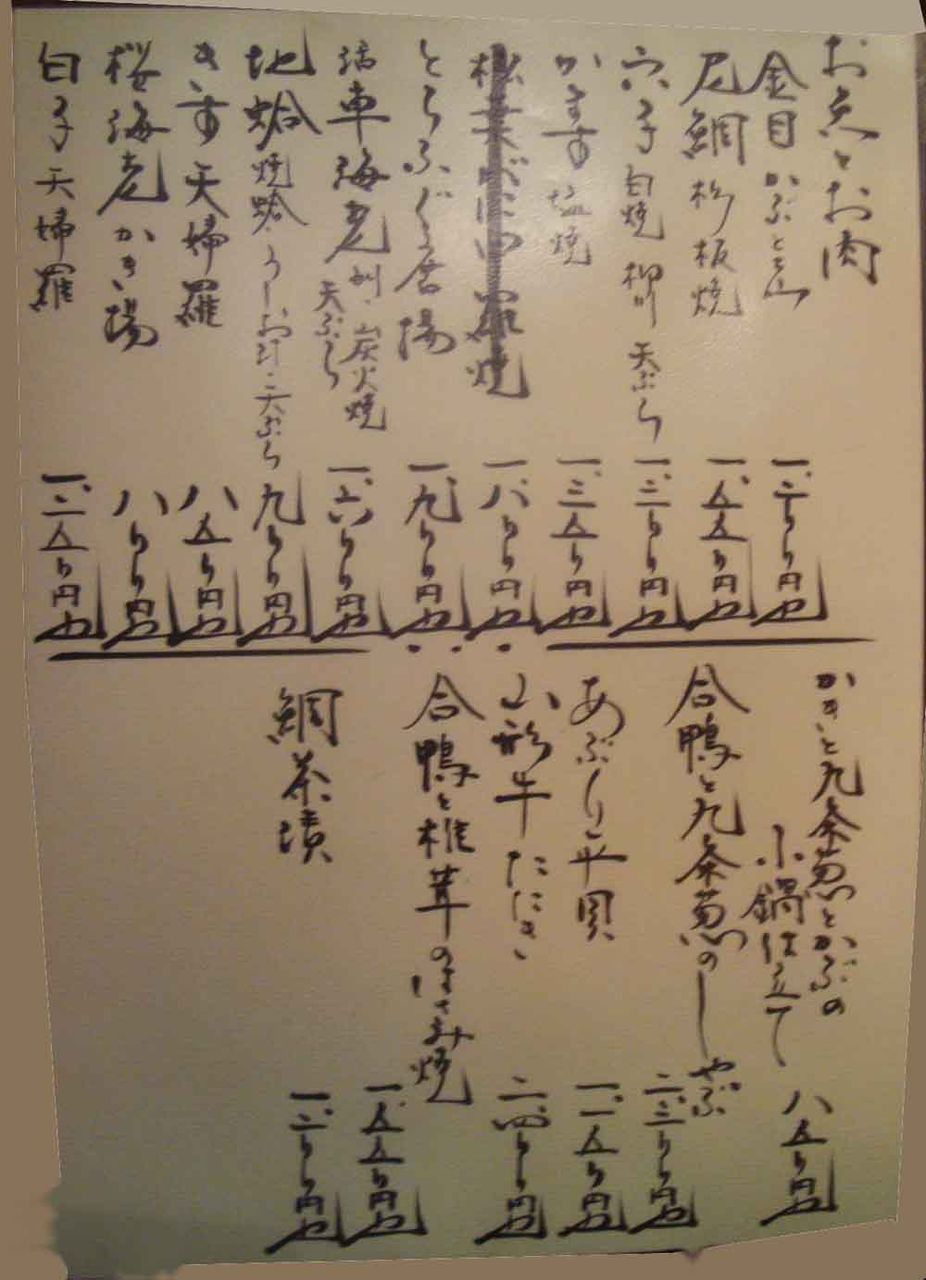 お魚とお肉
金目 かぶと山 一、二〇〇円也
尼鯛 杉板焼 一、五五〇円也
穴子 白焼 柳川 天ぷら 一、三〇〇円也
かます 塩焼 一、三五〇円也
松葉がに甲羅焼 一、八〇〇円也
とらふぐ唐揚 一、九〇〇円也
活車海老 刺、炭火焼 天ぷら 一、六〇〇円也
地蛤 焼蛤、うしお汁、天ぷら 九〇〇円也
きす天婦羅 八五〇円也
桜海老かき揚 八〇〇円也
白子 天婦羅 一、二五〇円也
かきと九条葱とかぶの
小鍋仕立て 八五〇円也
合鴨と九条葱のしゃぶしゃぶ 二、三〇〇円也
あぶり平貝 一、一五〇円也
山形牛たたき 二、四〇〇円也
合鴨と椎茸のはさみ焼 一、五五〇円也
鯛茶漬 一、二〇〇円也